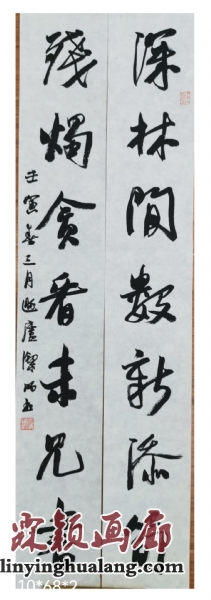 深林閒數新添
殘燭貪看未見書
壬寅春三月
霖颖画廊
linyinghualang.com
10*68*2